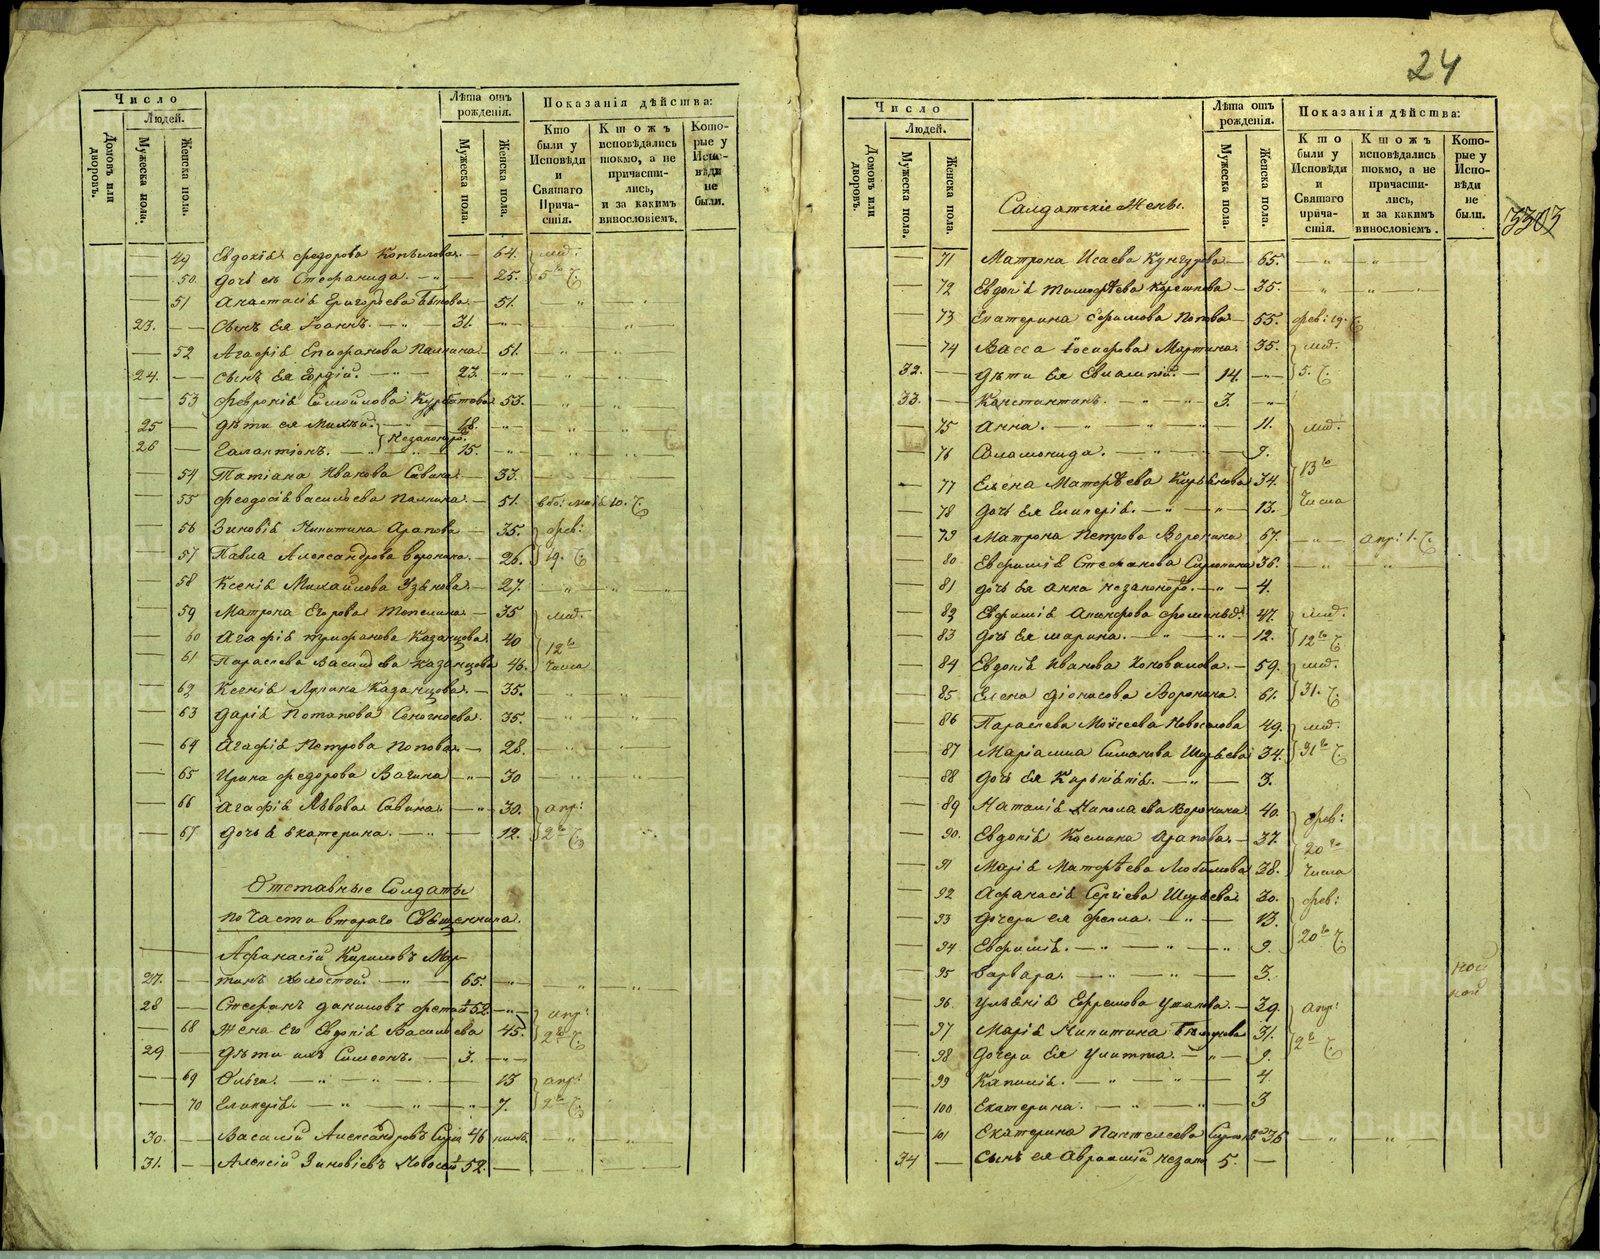 Число
Людей.
Домовъ или дворовъ.
Мужеска пола.
Женска пола.
Лѣта отъ рожденія.
Мужеска пола.
Женска пола.
Показанія дѣйства:
Кто были у Исповѣди и Святаго Прича-стія.
Ктожъ исповѣдались токмо, а не причасти-лись, и за какимъ винословіемъ.
Кото-рые у Испо-вѣди не были.
49 Евдокія Федорова Копылова. — 64.
50. Дочь ея Стефанида. — „ — 25.
51 Анастасія Григорьева Быкова. — 51.
23. — Сынъ Ея Іоаннъ. — „ — 31.
52 Агафія Епифанова Палкина 51.
24. — Сынъ Ея Гордій. — 23.
53 Февронія Самойлова Курбатова 53.
25 — Дѣти ея Михей. 18.
26 — Галактіонъ. — „ — 15.
54 Татіана Иванова Савина 33.
55 Феодосія Васильева Палкина. — 51.
56 Зиновія Никитина Арапова — 35. фев:
57 Павла Александрова Воронина. — 26. 19.
58 Ксенія Михайлова Узянова. — 27.
59 Матрона Егорова Тепелина — 35
60 Агафія Трифанова Казанцова. 40 12го
61 Параскева Васильева Казанцова 46. Числа
62 Ксенія Лукина Казанцова. — 35.
63 Дарія Потапова Сеногноева. 35.
64 Агафія Петрова Попова. — 28.
65 Ирина Федорова Вагина — „ — 30
66 Агафія Львова Савина. — „ 30. апр:
67 Дочь Екатерина. — „ — 12. 2го
Отставные Солдаты
по части втораго Священника.
Афанасій Кириловъ Мар-
27. — тинъ холостой. — „ — 65.
28 — Стефанъ Даниловъ 52
68 Жена Его Евдокія Васильева 45. апр:
29 — Дѣти ихъ Симеонъ. — 3.
69 Ольга. — „ — „ — 13 апр:
70 Гликерія. — „ — „ — 7. 2го
30. — Василій Александровъ 46
31. — Алексій Зиновіевъ 52.
24
Число
Людей.
Домовъ или дворовъ.
Мужеска пола.
Женска пола.
Лѣта отъ рожденія.
Мужеска пола.
Женска пола.
Показанія дѣйства:
Кто были у Исповѣди и Святаго прича-стія.
Ктожъ исповѣдались токмо, а не причасти-лись, и за какимъ винословіемъ.
Кото-рые у Испо-вѣди не были.
Салдатскіе Жены.
71 Матрона Исаева — 65.
72 Евдокія Тимофѣева — 35.
73 Екатерина Ефимова Попова — 55. фев: 19.
74 Васса Іосифова Мартина. 35.
32. — Дѣти Ея Евлампій. — 14. 5.
33. — Константинъ. — „ — 3.
75 Анна. — „ — „ — 11.
76 — „ — „ — 9.
77 Елена Матфѣева 34. 13го
78 Дочь Ея Гликерія. — „ — 13. Числа
79 Матрона Петрова Воронина 67. апр: 1.
80 Евфимія Стефанова 36.
81 Дочь Ея Анна незаконор. — „ — 4.
82 Евфимія 47.
83 Дочь Ея Марина. — „ — 12. 12го
84 Евдокія Иванова Коновалова. — 59.
85 Елена Воронина. 61. 31.
86 Параскева Моисеева Новоселова 49.
87 Маріамна Симанова Ширяева 34. 31го
88 Дочь Ея — „ — 3.
89 Наталія Николаева Воронина 40. фев:
90. Евдокія Космина Арапова. — 37. 20го
91 Марія Матфѣева Любимова 28. Числа
92 Афанасія Сергіева Ширяева. 30. фев:
93 Дочери ея Фекла. — „ — 13.
94 Евфимія. — „ — „ — 9. 20го
95 Варвара. — „ — 3.
96. Ульянія Ефремова Ушакова. — 29. апр:
97 Марія Никитина 31. 2го
98 Дочери Ея Улитта. — „ — 9.
99 — „ — „ — 4
100 Екатерина. — „ — 3
101 Екатерина Пантелеева 36
34 — Сынъ ея Авраамій незак 5.